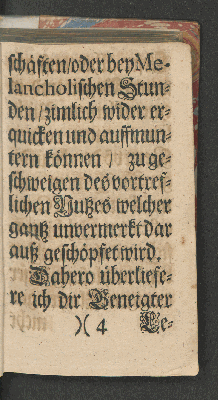 schäften/oder bey Me-
lancholischen Stun-
den/zimlich wider er-
quicken und auffmun-
tern können / zu ge-
schweigen des vortref-
lichen Nutzes welcher
gantz unvermerkt dar
auß geschöpfet wird.
Dahero überliefe-
re ich dir Geneigter
)( 4 Le-